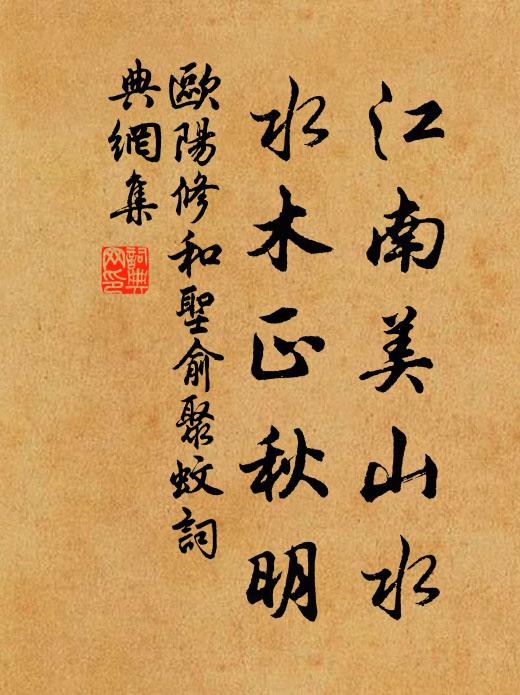 江南美山水
水木正秋明
歐陽修和聖俞聚蚊詞
典網集
詞典
网印